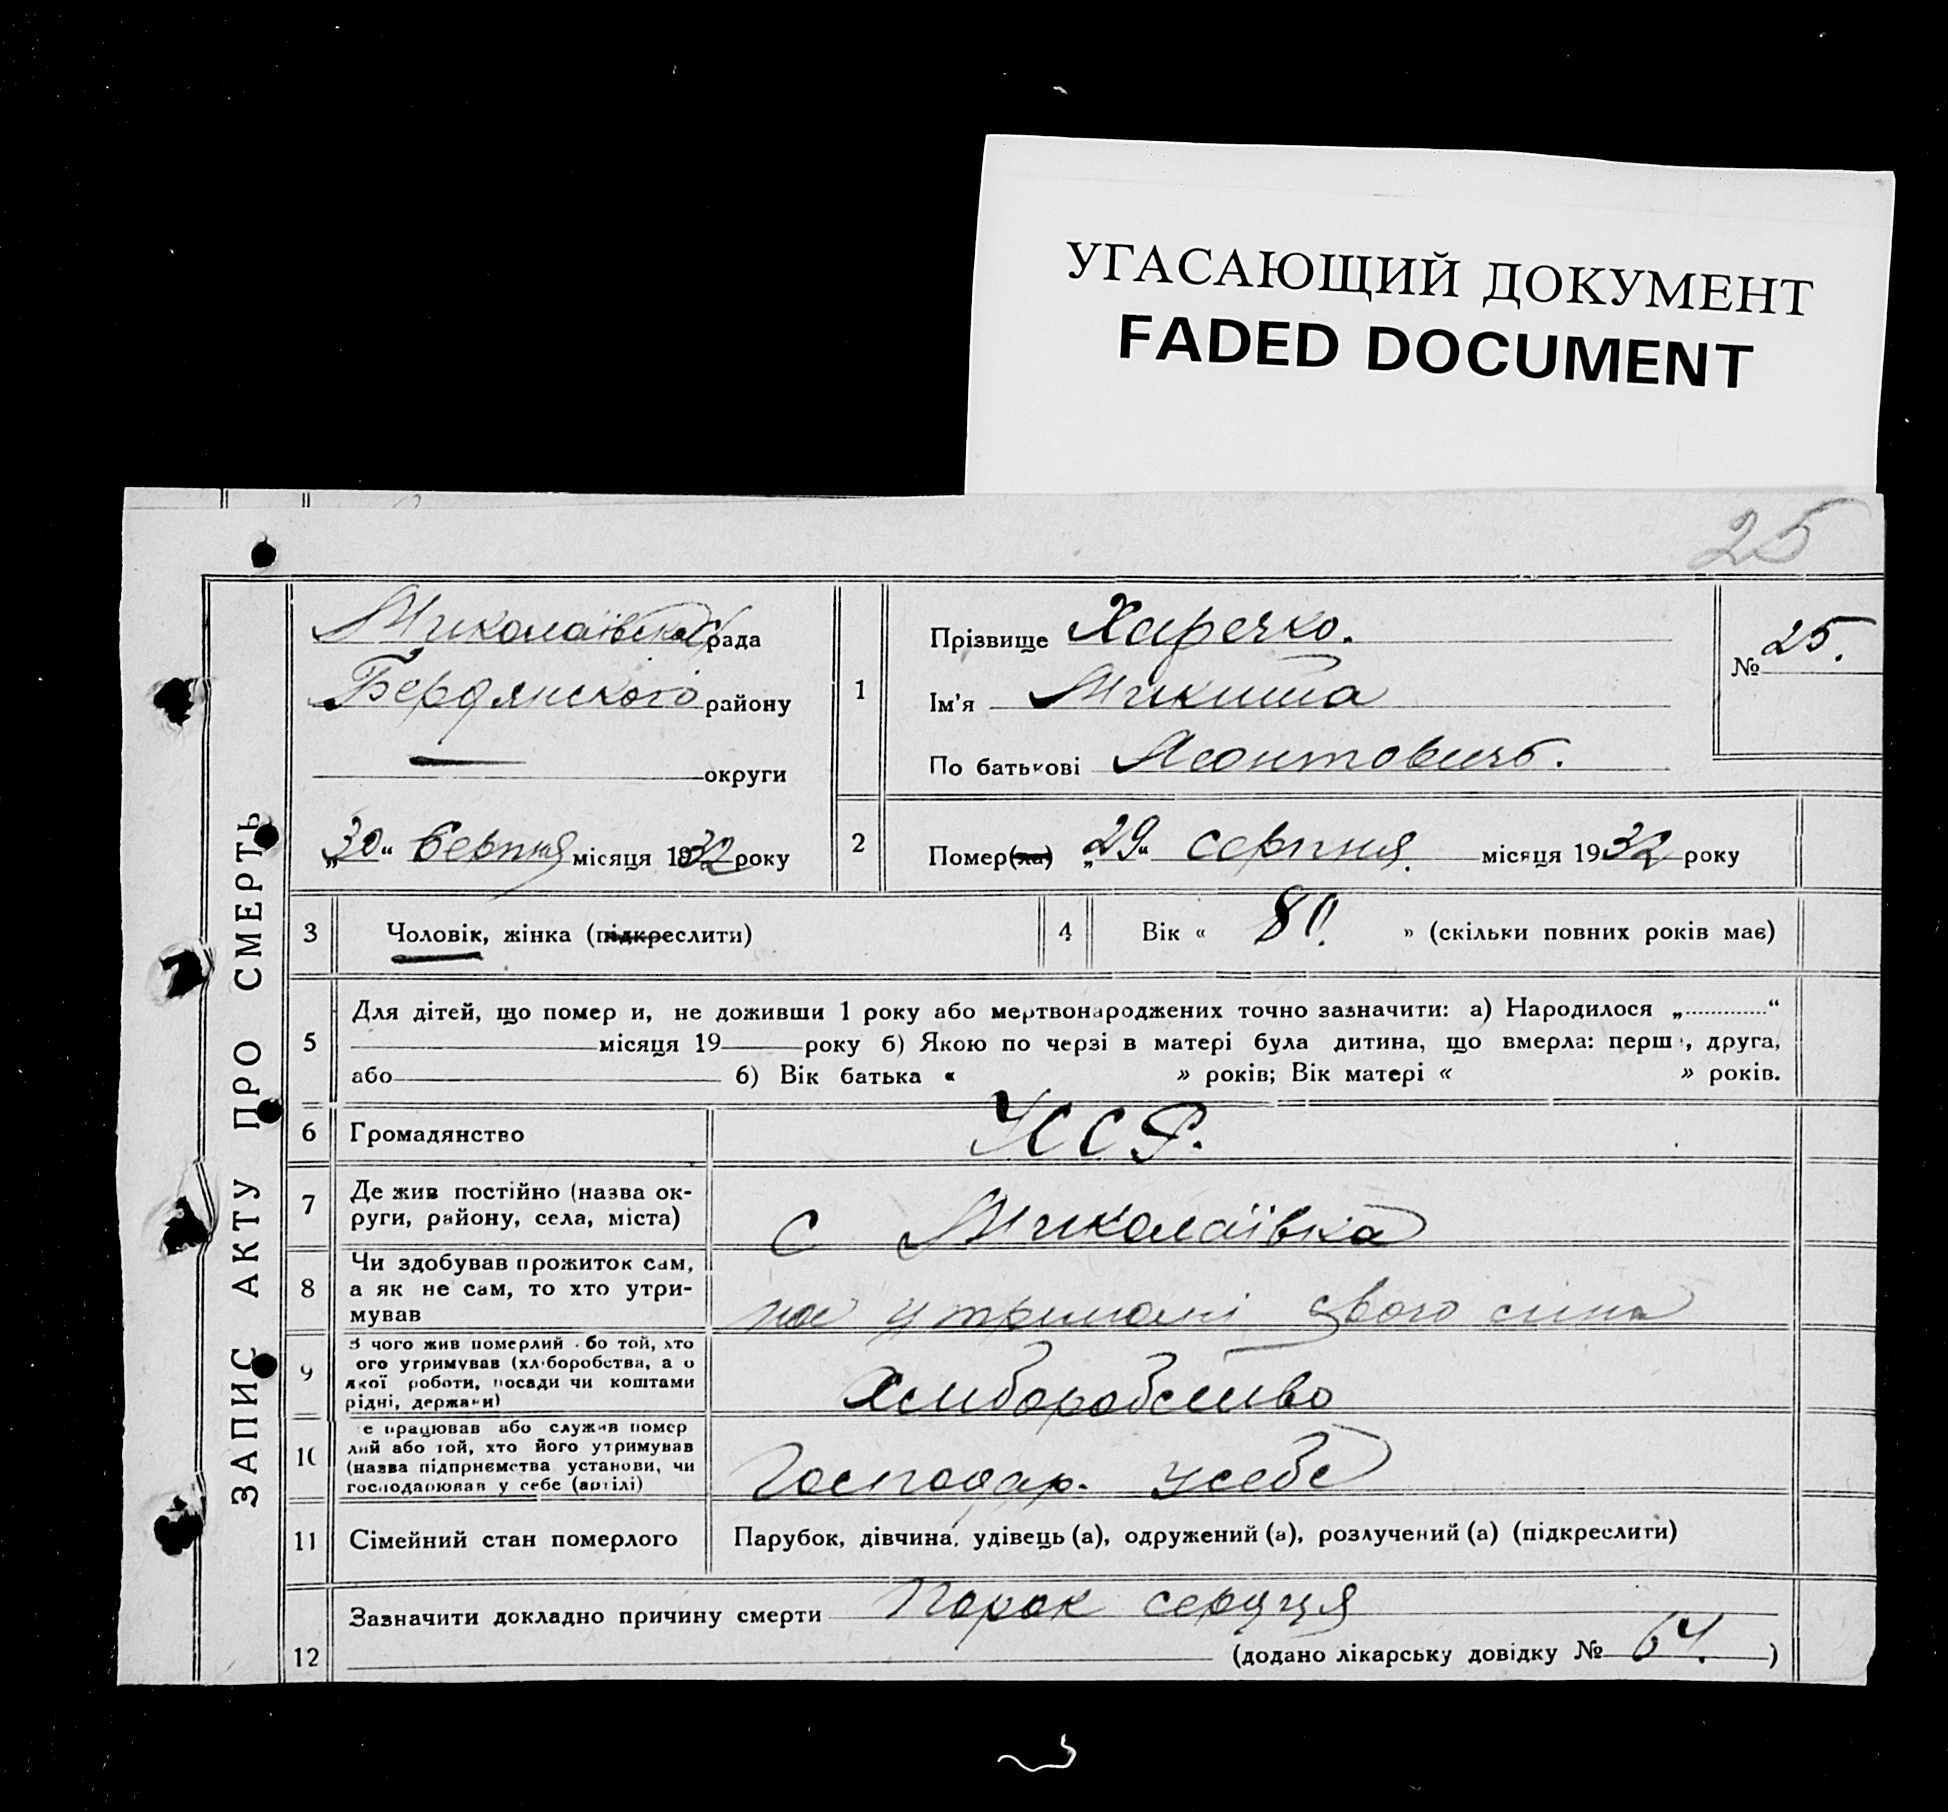 УГАСАЮЩИЙ ДОКУМЕНТ
FADED DOCUMENT
25
ЗАПИС АКТУ ПРО СМЕРТЬ
Миколаївська рада
Бердянського району
— округи
„30“ серпня місяця 1932 року
1
Прізвище Харечко.
Ім'я Микита
По батькові Леонтовичь.
№ 25.
2
Помер(ла) „29“ серпня. місяця 1932 року
3 Чоловік, жінка (підкреслити)
4 Вік « 80. » (скільки повних років має)
5 Для дітей, що помер и, не доживши 1 року або мертвонароджених точно зазначити: а) Народилося „ “
місяця 19 року б) Якою по черзі в матері була дитина, що вмерла: перш , друга,
або б) Вік батька « » років; Вік матері « » років.
6 Громадянство УССР.
7 Де жив постійно (назва ок-
руги, району, села, міста)
С Миколаївка
8 Чи здобував прожиток сам,
а як не сам, то хто утри-
мував
на утримані свого сина
9 З чого жив померлий бо той, хто
ого утримував (хл боробства, а о
якої роботи, посади чи коштами
рідні, держави)
Хлиборобство
10 е працював або служив помер
лий або той, хто його утримував
(назва підприємства установи, чи
господарював у себе (артілі)
Господар. усебе
11 Сімейний стан померлого Парубок, дівчина, удівець (а), одружений (а), розлучений (а) (підкреслити)
12 Зазначити докладно причину смерти Порок сердця
(додано лікарську довідку № 64. )